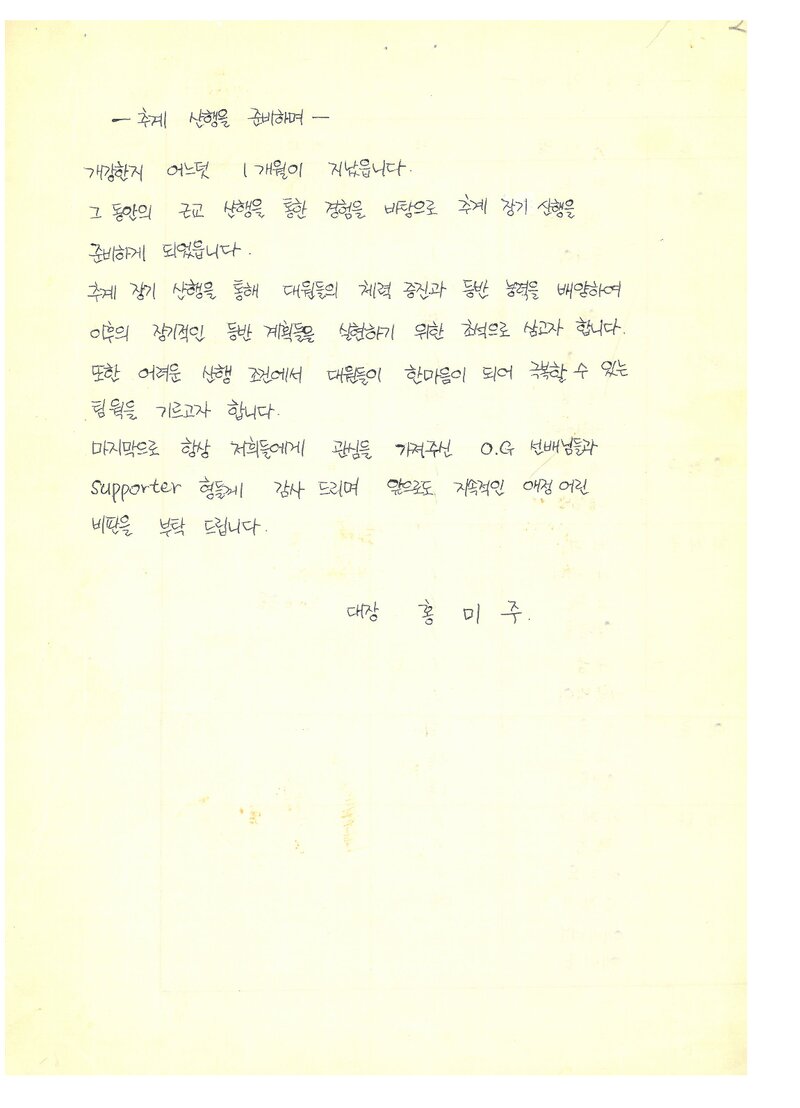 — 추계 산행을 준비하며 —
개강한지 어느덧 1개월이 지났읍니다.
그 동안의 근교 산행을 통한 경험을 바탕으로 추계 장기 산행을
준비하게 되었읍니다.
추계 장기 산행을 통해 대원들의 체력 증진과 등반 능력을 배양하여
이후의 장기적인 등반 계획들을 실현하기 위한 초석으로 삼고자 합니다.
또한 어려운 산행 조건에서 대원들이 한마음이 되어 극복할 수 있는
팀웍을 기르고자 합니다.
마지막으로 항상 저희들에게 관심을 가져주신 O.G 선배님들과
Supporter 형들께 감사 드리며 앞으로도 지속적인 애정 어린
비판을 부탁 드립니다.
대장 홍 미 주.